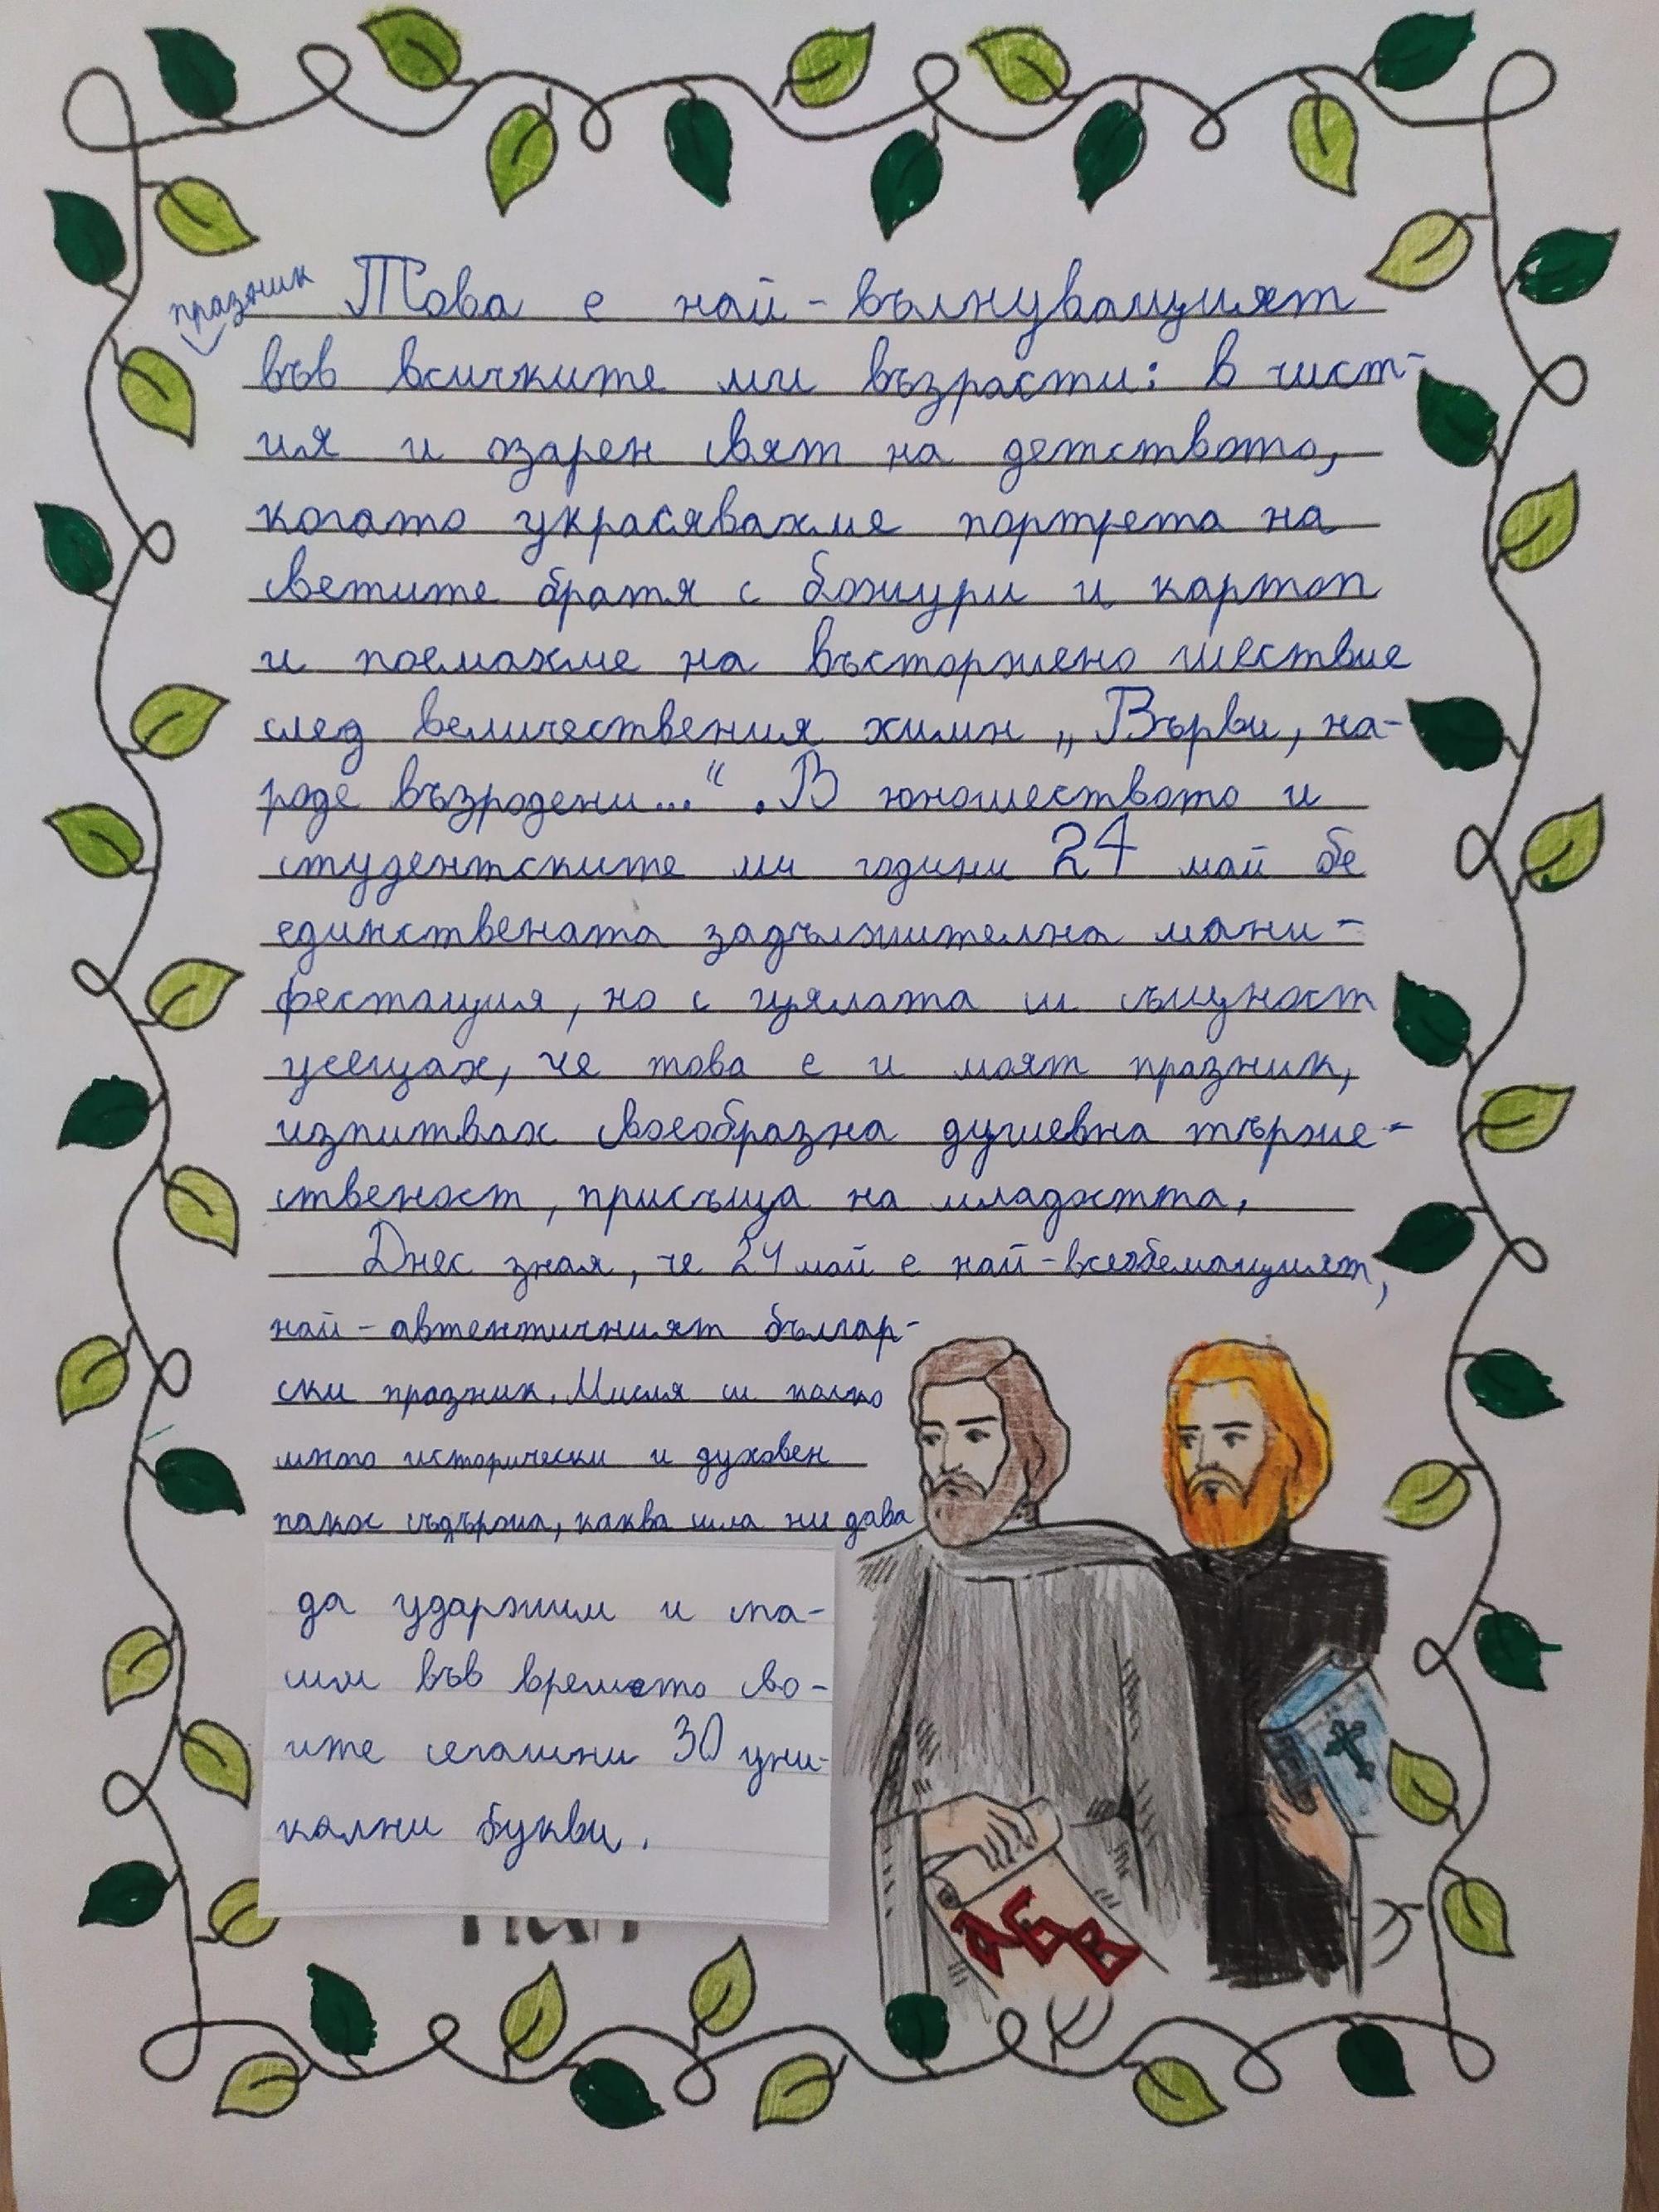 празник
Това е най-вълнуващият
във всичките ми възрасти: в чист-
ия и озарен свят на детството,
когато украсявахме портрета на
светите братя с божури и картоп
и поемахме на възторжено шествие
след величествения химн „Върви, на-
роде възродени...“. В юношеството и
студентските ми години 24 май бе
единствената задължителна мани-
фестация, но с цялата си същност
усещах, че това е и моят празник,
изпитвах своеобразна душевна търже-
ственост, присъща на младостта.
Днес зная, че 24 май е най-всеобемащият,
най-автентичният българ-
ски празник. Мисля си колко
много исторически и духовен
палос съдържа, каква сила ни дава
да удържим и спа-
сим във времето сво-
ите сегашни 30 уни-
кални букви.
АБВ